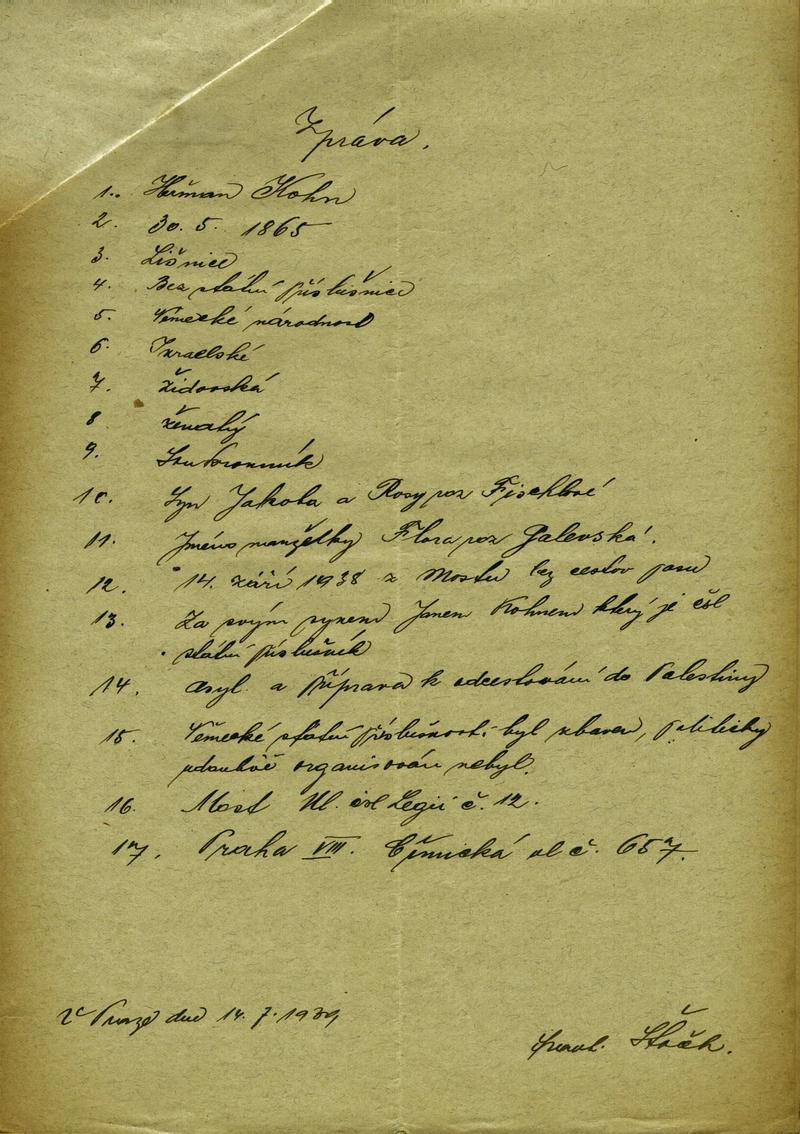 Zpráva.
1. Heřman Kohn
2. 30. 5. 1865
3. Lišnice
4. Bez státní příslušnice
5. Německé národnost
6. Izraelské
7. židovská
8 ženatý
9.
10. Syn Jakoba a Rosy roz Fischlové
11. Jméno manželky Flora roz Galevská.
12. 14. září 1938 z Mostu bez cestov pasu
13. Za svým synem Janem Kohnem který je čsl
státní příslušník
14. asyl. a příprava k odcestování do Palestiny
15. Německé státní příslušnosti byl zbaven, politicky
udavově organisován nebyl.
16. Most Ul. čsl Legií č. 12.
17. Praha VIII. ul č. 657.
V Praze dne 14. 7. 1939